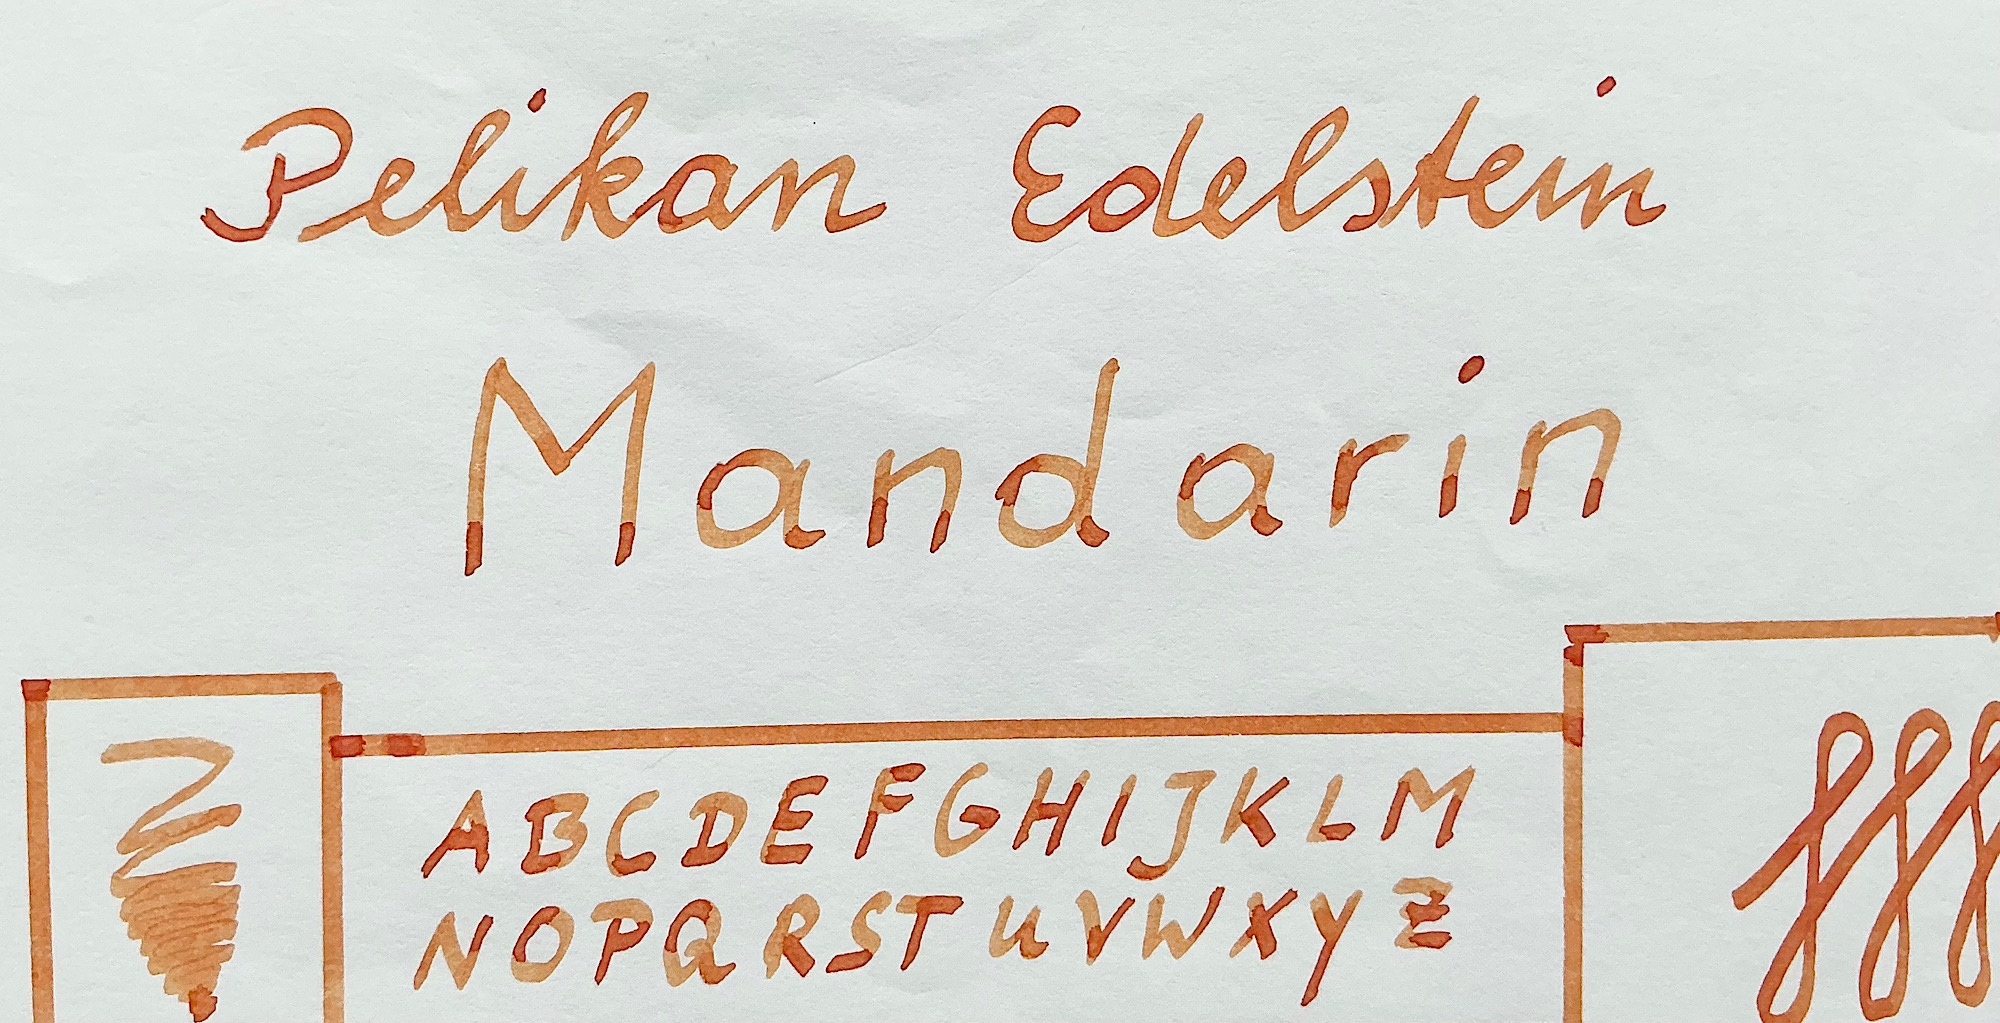 Pelikan Edelstein
Mandarin
ABCDEFGHIJKLM
NOPQRSTUVWXYZ
fff